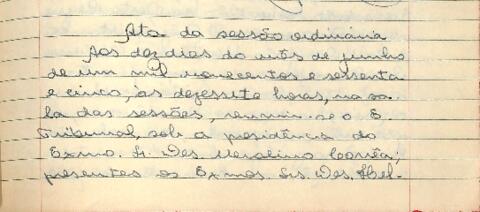 Ata da sessão ordinária
Aos dez dias do mês de junho
de um mil novecentos e sessenta
e cinco, às dezessete horas, na sa-
la das sessões, reuniu-se o E.
Tribunal, sob a presidência do
Exmo. Sr. Des. Corrêa;
presentes os Exmos. Srs. Des. Hel-